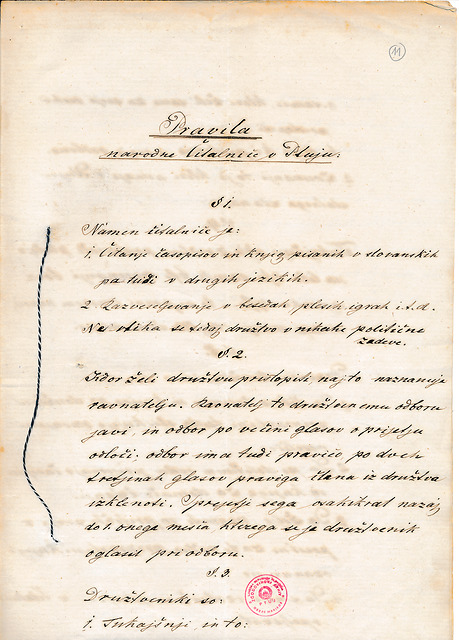 11
Pravila
narodne Čitalnice v Ptuju:
§ 1.
Namen čitalnice je:
1. Čitanje časopisov in knjig pisanih v slovanskih
pa tudi v drugih jezikih.
2. Razveseljevanje v besedah, plesih, igrah i.t.d.
Ne vtika se tedaj družtvo v nikake politične
zadeve.
§. 2.
Kdor želi družtvu pristopiti, naj to naznanuje
ravnatelju. Ravnatelj to družtvenemu odboru
javi, in odbor po večini glasov o prijetju
odloči; odbor ima tudi pravico, po dveh
tretjinah glasov praviga člana iz družtva
izkleniti. prijetje sega vsakikrat nazaj
do 1. onega mesca kterega se je družtvenik
oglasil pri odboru.
§. 3.
Družtveniki so:
1. Tukajšnji, in to: